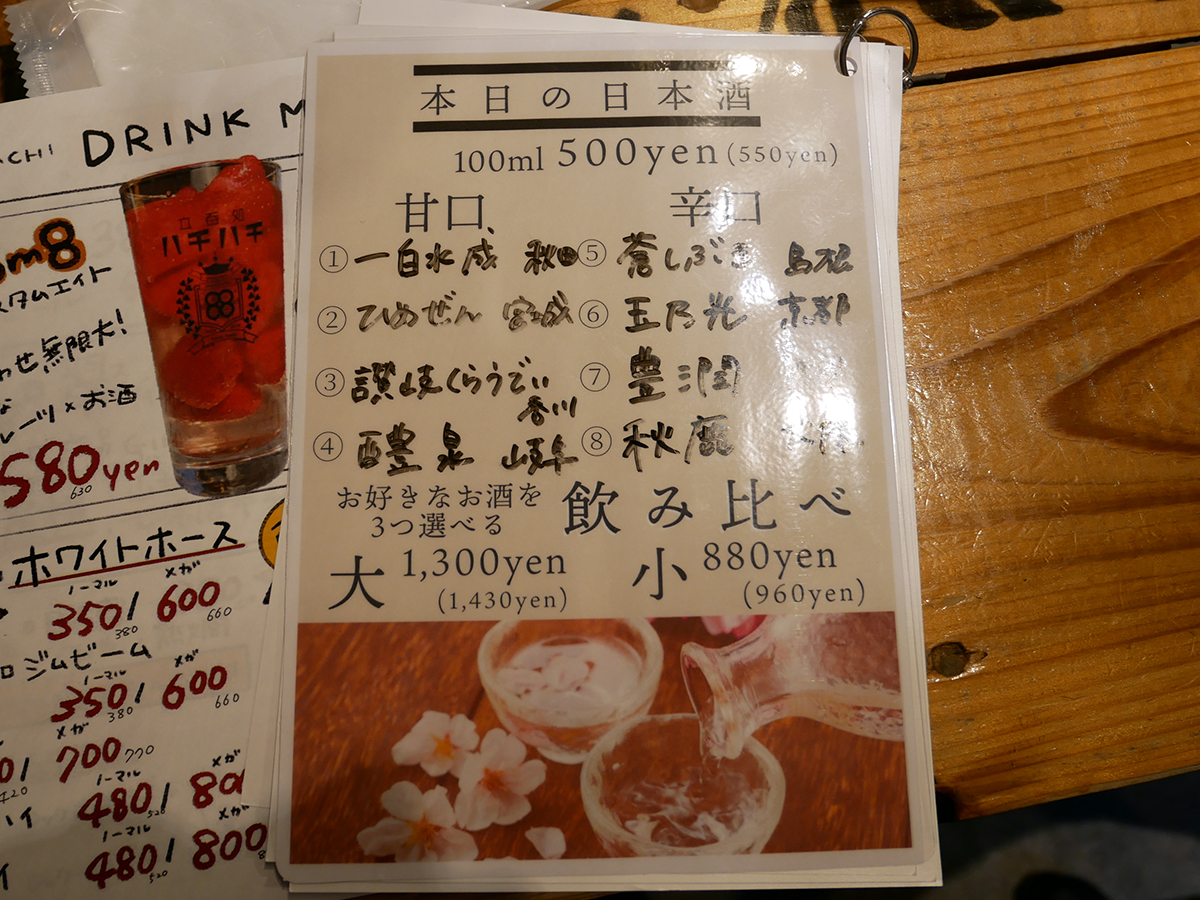 本日の日本酒
100ml 500yen (550yen)
甘口 辛口
① 一白水成 秋田
② ひめぜん 宮城
③ 讃岐くらうでぃ 香川
④ 醴泉 岐阜
⑤ 蒼しぶき 島根
⑥ 玉乃光 京都
⑦ 豊潤
⑧ 秋鹿
お好きなお酒を
3つ選べる
飲み比べ
大 1,300yen
(1,430yen)
小 880yen
(960yen)
CHI DRINK M
om8
スタムエイト
わせ無限大!
ルーツ×お酒
580yen
630
立呑処
ハチハチ
88
ホワイトホース
ノーマル メガ
350/ 600
380 660
ジムビーム
ノーマル メガ
350/ 600
380 660
メガ
700 770
420
ノーマル メガ
ハイ 480/ 80
520
ノーマル メガ
イ 480/ 800
520